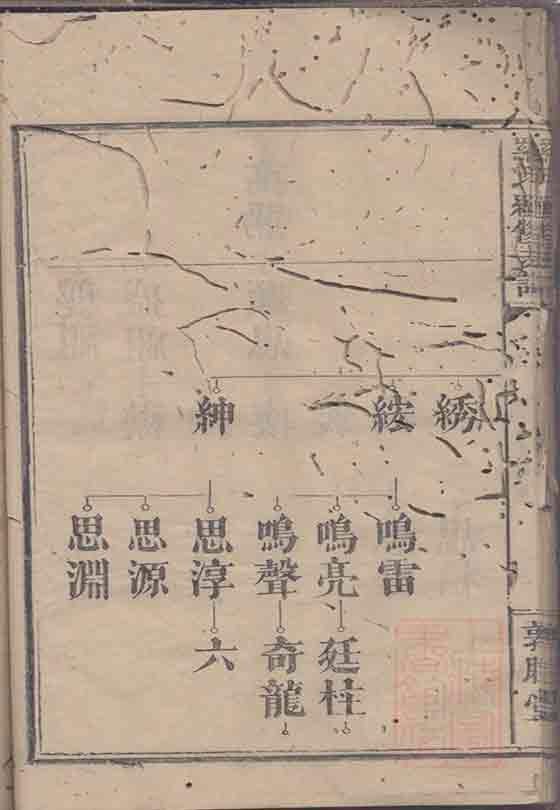 綉
綋
紳
鳴雷
鳴亮
鳴聲
思淳
思源
思淵
廷柱
奇龍
六